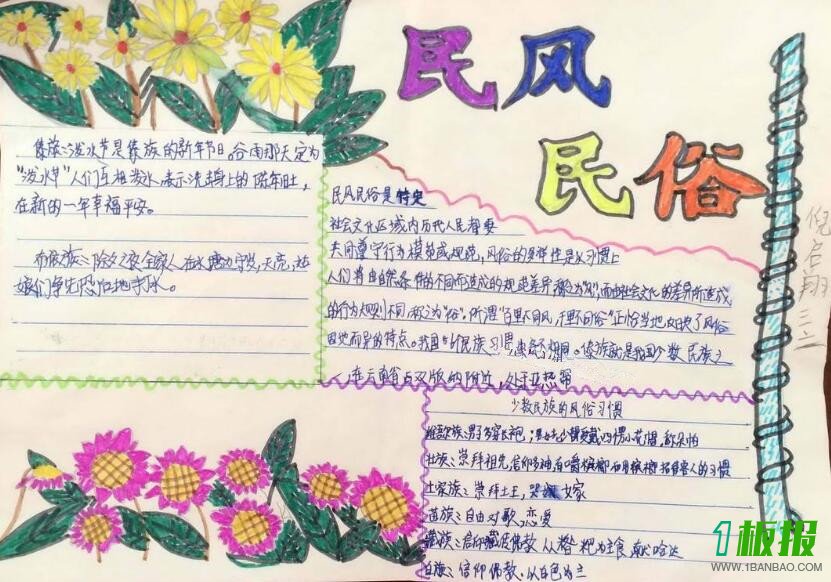 民风
民俗
傣族:泼水节是傣族的新年节日。谷雨那天定为
"泼水节"人们互相泼水,表示洗掉身上的陈年旧
在新的一年幸福平安。
布依族:除夕之夜全家人在火塘边守岁,天亮,
娘们争先恐后地 水。
民风民俗是特定
社会文化区域内历代人民都要
共同遵守行为模范或规范,风俗的多样性是以习惯上
人们将由自然条件的不同而造成的规范差异称之为"风",而由社会文化的差异所造成
的行为规则不同,称之为"俗"。所谓"百里不同风,千里不同俗"正恰当地反映了风俗
因地而异的特点。我国 民族习惯 不相同。傣族就是我国少数民族之
一,在云南省 双版纳附近,处于亚热带
少数民族的风俗习惯
维 族:男子多穿长袍, 戴四愣小花帽,称朵帕
壮族:崇拜祖先,信仰多神,有嚼槟榔而用槟榔招待客人的习惯
土家族:崇拜土王,哭 嫁
苗族:自由对歌,恋爱
藏族:信仰藏 佛教 从 粑为主食 献哈达
白族:信仰佛教,以白色为主
倪启翔
三.二
1板报
WWW.1BANBAO.COM